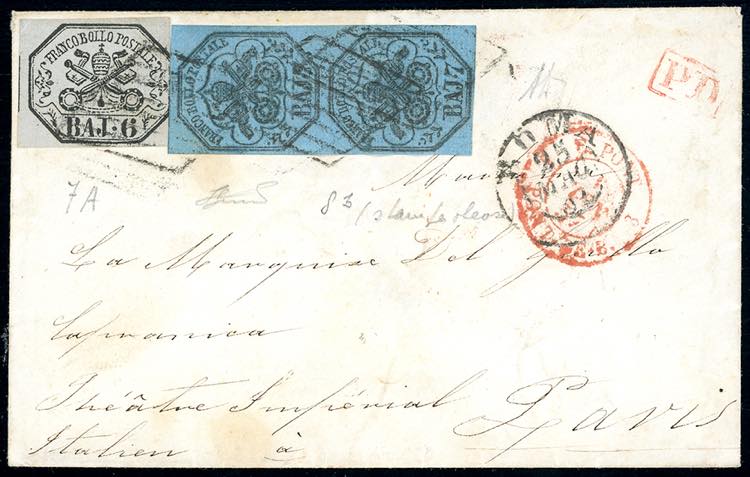 FRANCO BOLLO POSTALE
BAJ. 6
FRANCO BOLLO POSTALE
BAJ. 7
FRANCO BOLLO POSTALE
BAJ. 7
P.D.
ROMA
25
MAG
7A
83
La Marquise Del Grillo
Capranica
Théâtre Impérial
Italien à Paris